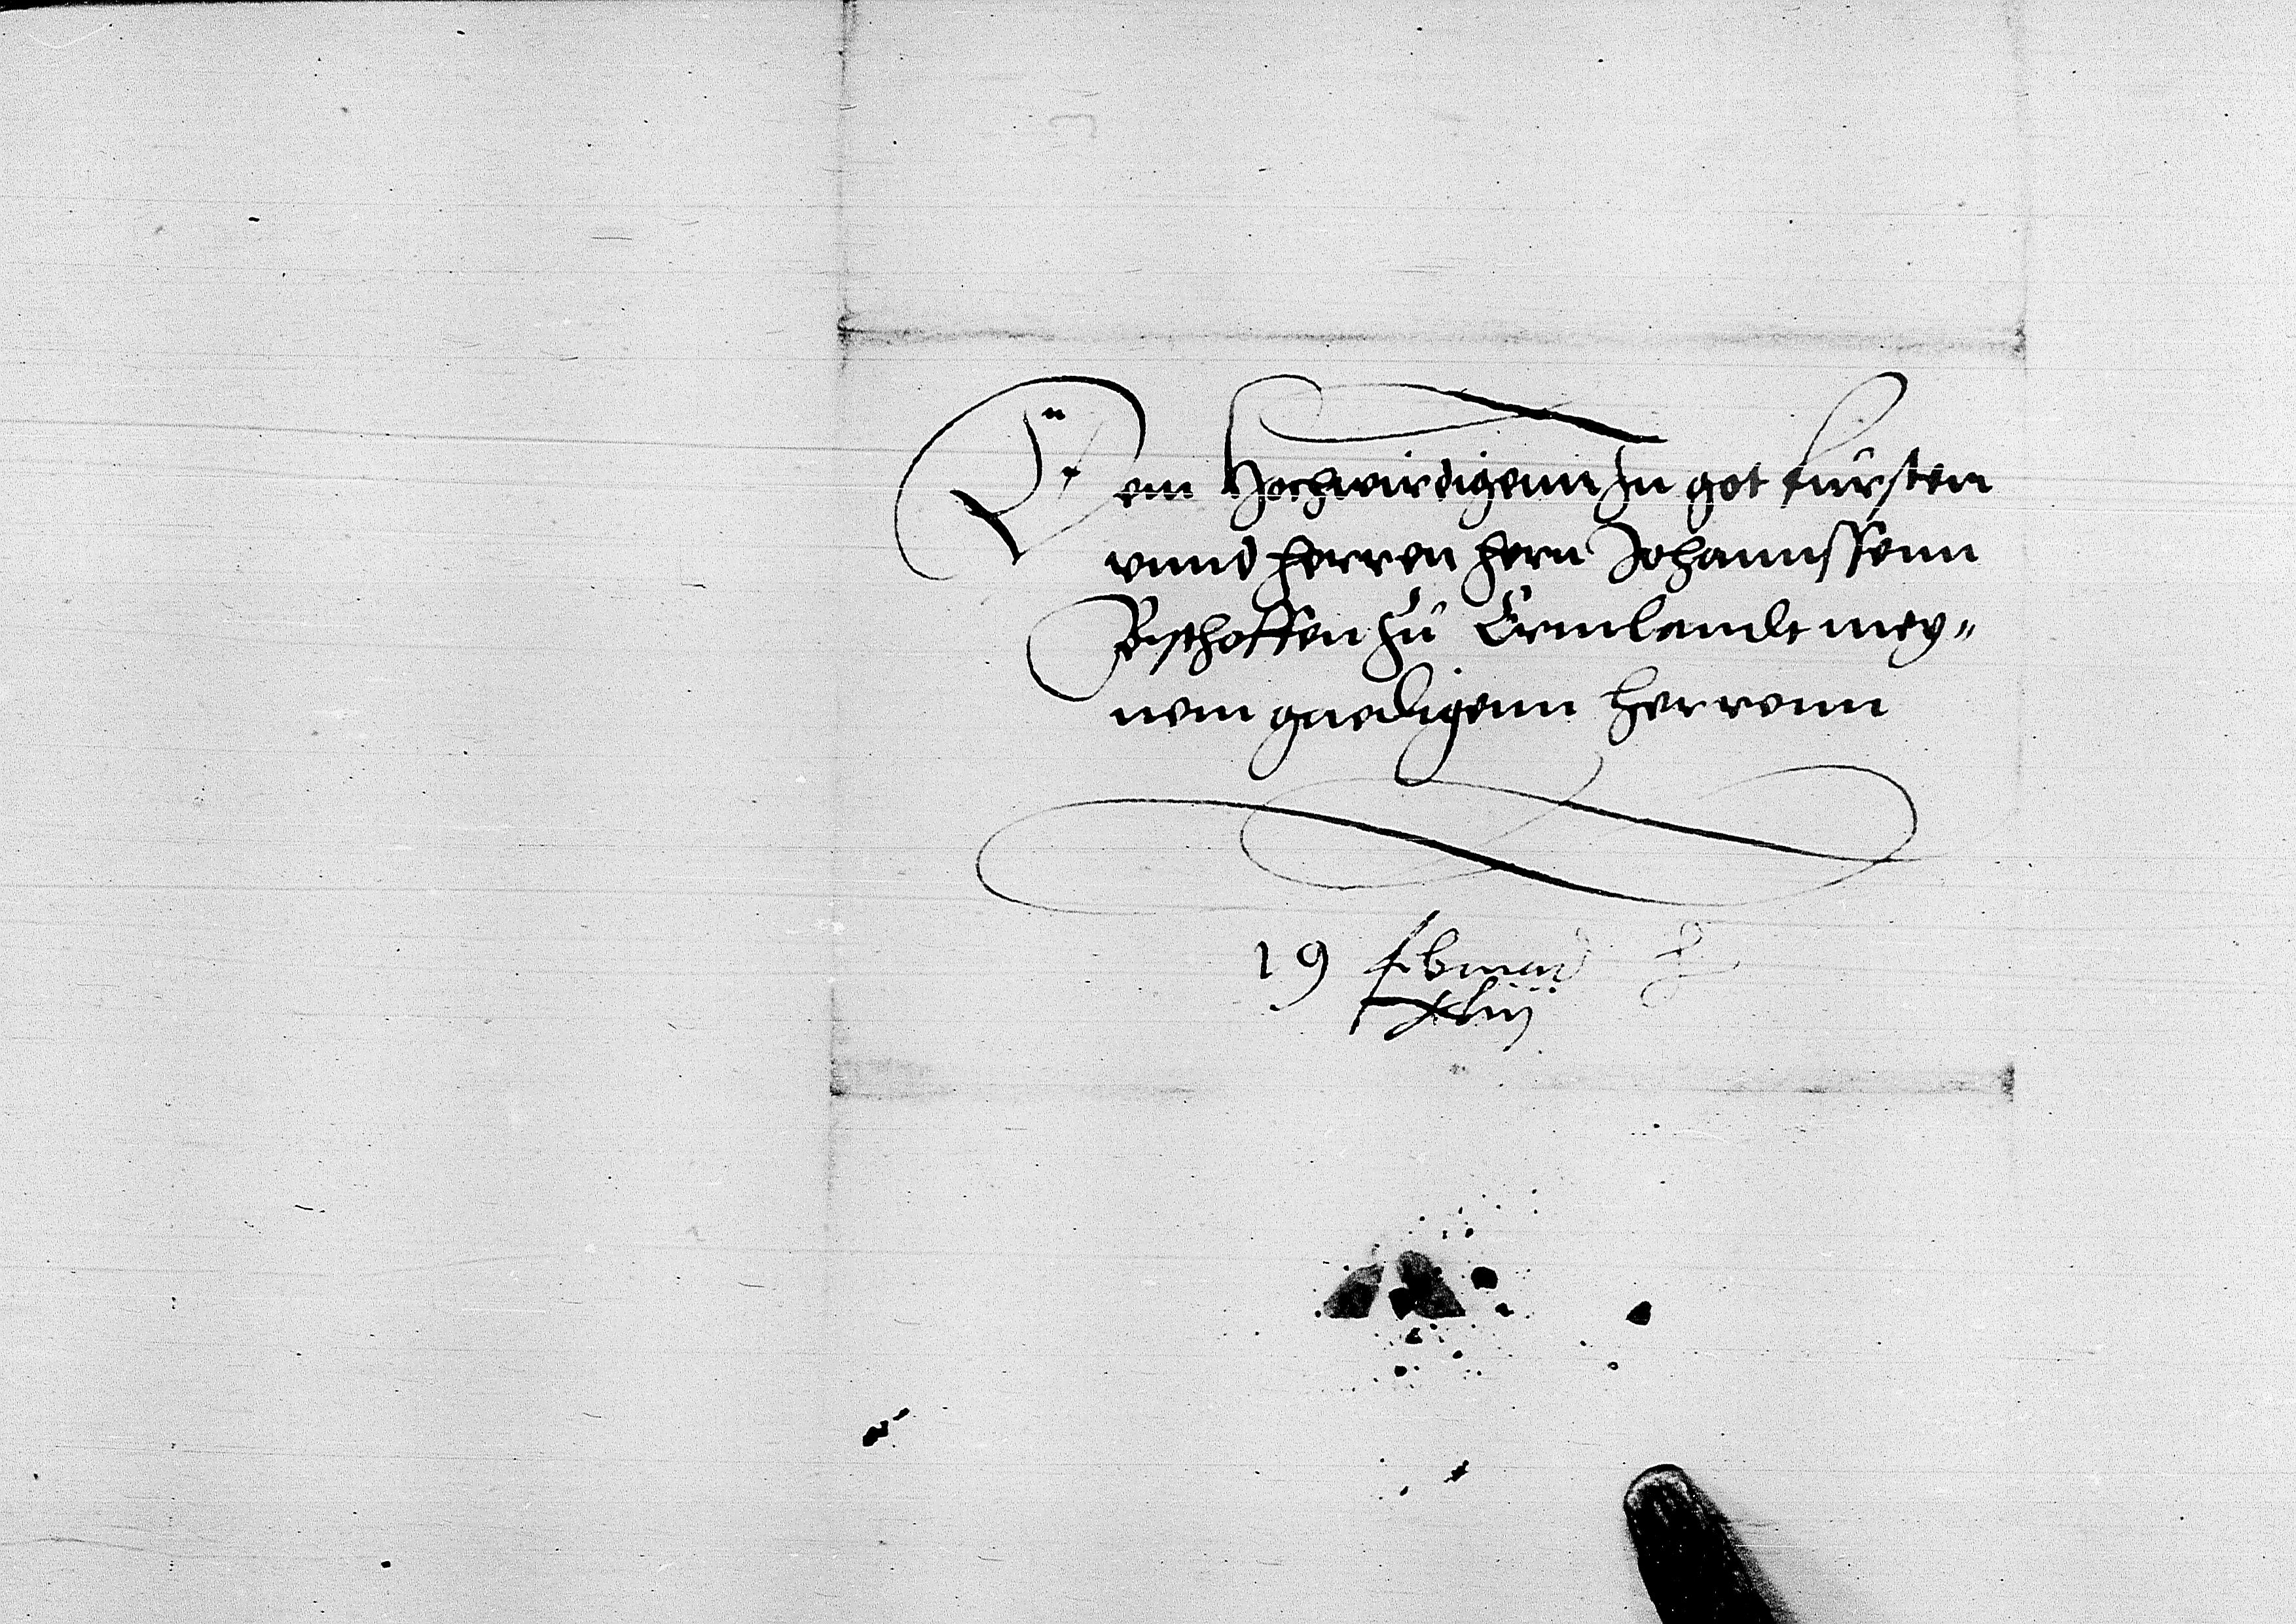 Dem Hochwirdigenn In got fürsten
vnnd herren hern Johannssenn
Bischoffen zü Ermlandt mey„
nem gnedigenn herrenn
19 februarii
xliij